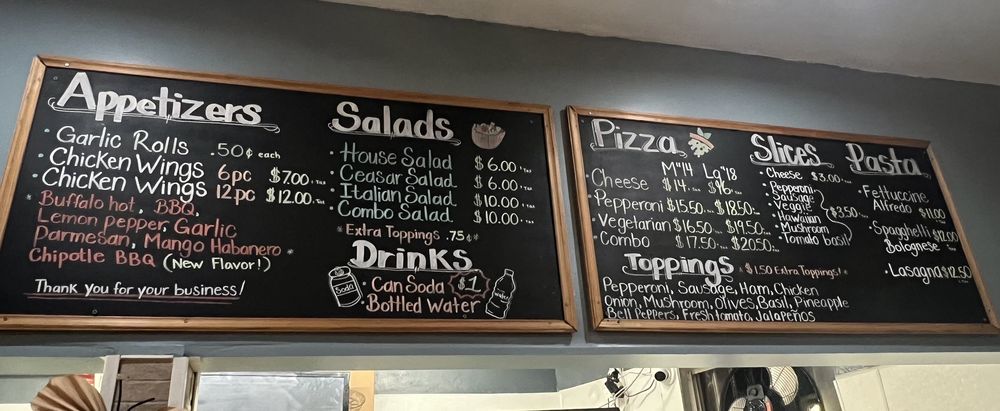 Appetizers
Garlic Rolls .50¢ each
Chicken Wings 6pc $7.00 + Tax
Chicken Wings 12pc $12.00 + Tax
* Buffalo hot, BBQ,
Lemon pepper, Garlic
Parmesan, Mango Habanero *
Chipotle BBQ (New Flavor!)
Thank you for your business!
Salads
· House Salad $6.00 + Tax
· Ceasar Salad $6.00 + Tax
· Italian Salad $10.00 + Tax
· Combo Salad $10.00 + Tax
*Extra Toppings .75¢*
Drinks
Soda
· Can Soda
Bottled Water
$1
water
Pizza
M"14 Lg"18
· Cheese $14. + Tax $16 + Tax
· Pepperoni $15.50 + Tax $18.50 + Tax
· Vegetarian $16.50 + Tax $19.50 + Tax
· Combo $17.50 + Tax $20.50 + Tax
Slices
· Cheese $3.00 + Tax
· Pepperoni
· Sausage
· Veggie
· Hawaiian
· Mushroom
· Tomato basil
$3.50 + Tax
Pasta
· Fettuccine
Alfredo $11.00
+ Tax
· Spaghelli $12.00
Bolognese + Tax
· Lasagna $12.50
+ Tax
Toppings * $1.50 Extra Toppings! *
Pepperoni, Sausage, Ham, Chicken
Onion, Mushroom, Olives, Basil, Pineapple
Bell Peppers, Fresh tomato, Jalapeños